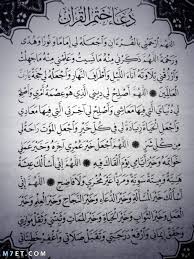 دعاء ختم القرآن
اللهم ارحمني بالقرءان واجعله لي إماما ونورا وهدى
ورحمة اللهم ذكرني منه مانسيت وعلمني منه ماجهلت
وارزقني تلاوته آناء الليل وأطراف النهار واجعله لي حجة يارب
العالمين اللهم أصلح لي ديني الذي هو عصمة أمري وأصلح
لي دنياي التي فيها معاشي وأصلح لي آخرتي التي فيها معادي
واجعل الحياة زيادة لي في كل خير واجعل الموت راحة لي
من كل شر اللهم اجعل خير عمري آخره وخير عملي
خواتمه وخير أيامي يوم ألقاك فيه اللهم إني أسألك عيشة
هنية وميتة سوية ومردا غير مخزي ولا فاضح اللهم إني
أسألك خير المسألة وخير الدعاء وخير النجاح وخير العلم
وخير العمل وخير الثواب وخير الحياة وخير الممات وثبتني وثقل موازيني
وحقق إيماني وارفع درجتي وتقبل صلاتي
M7ET.COM